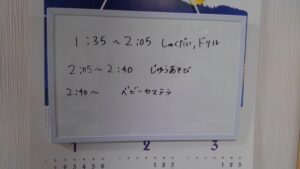 1:35～2:05 しゅくだい、ドリル
2:05～2:40 じゆうあそび
2:40～ ベビーカステラ
1 2 3